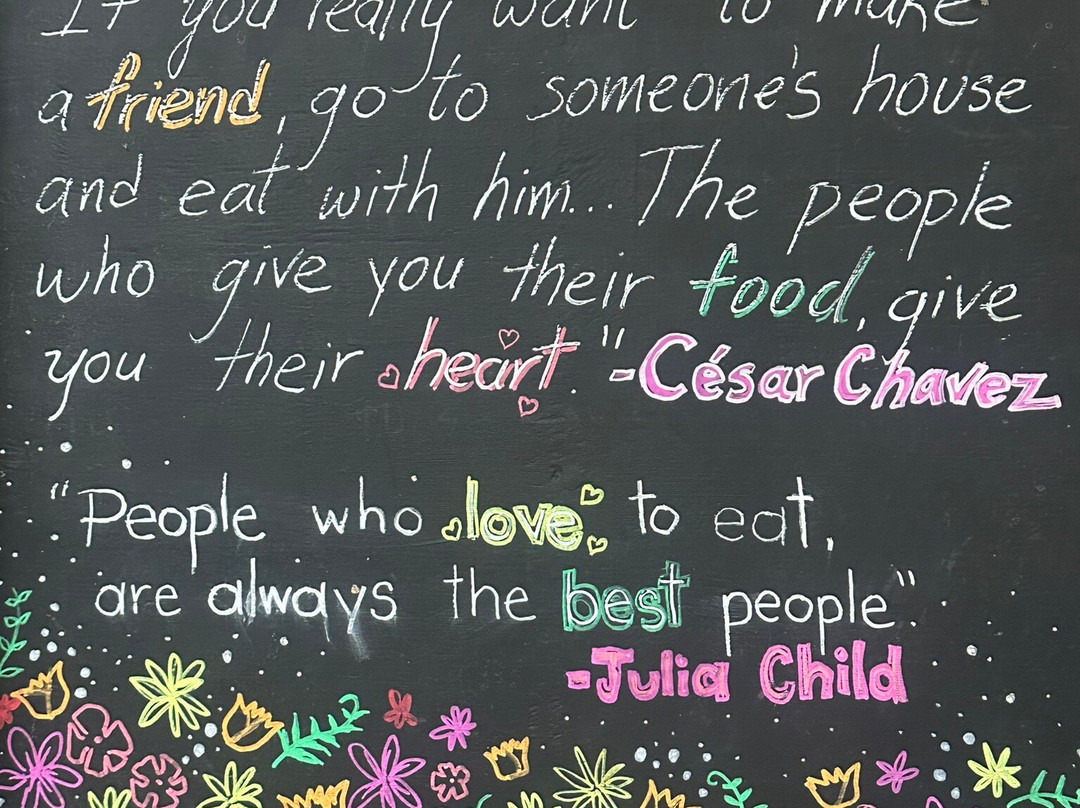 If you really want to make
a friend, go to someone's house
and eat with him... The people
who give you their food, give
you their heart." -César Chavez
"People who love to eat,
are always the best people".
-Julia Child